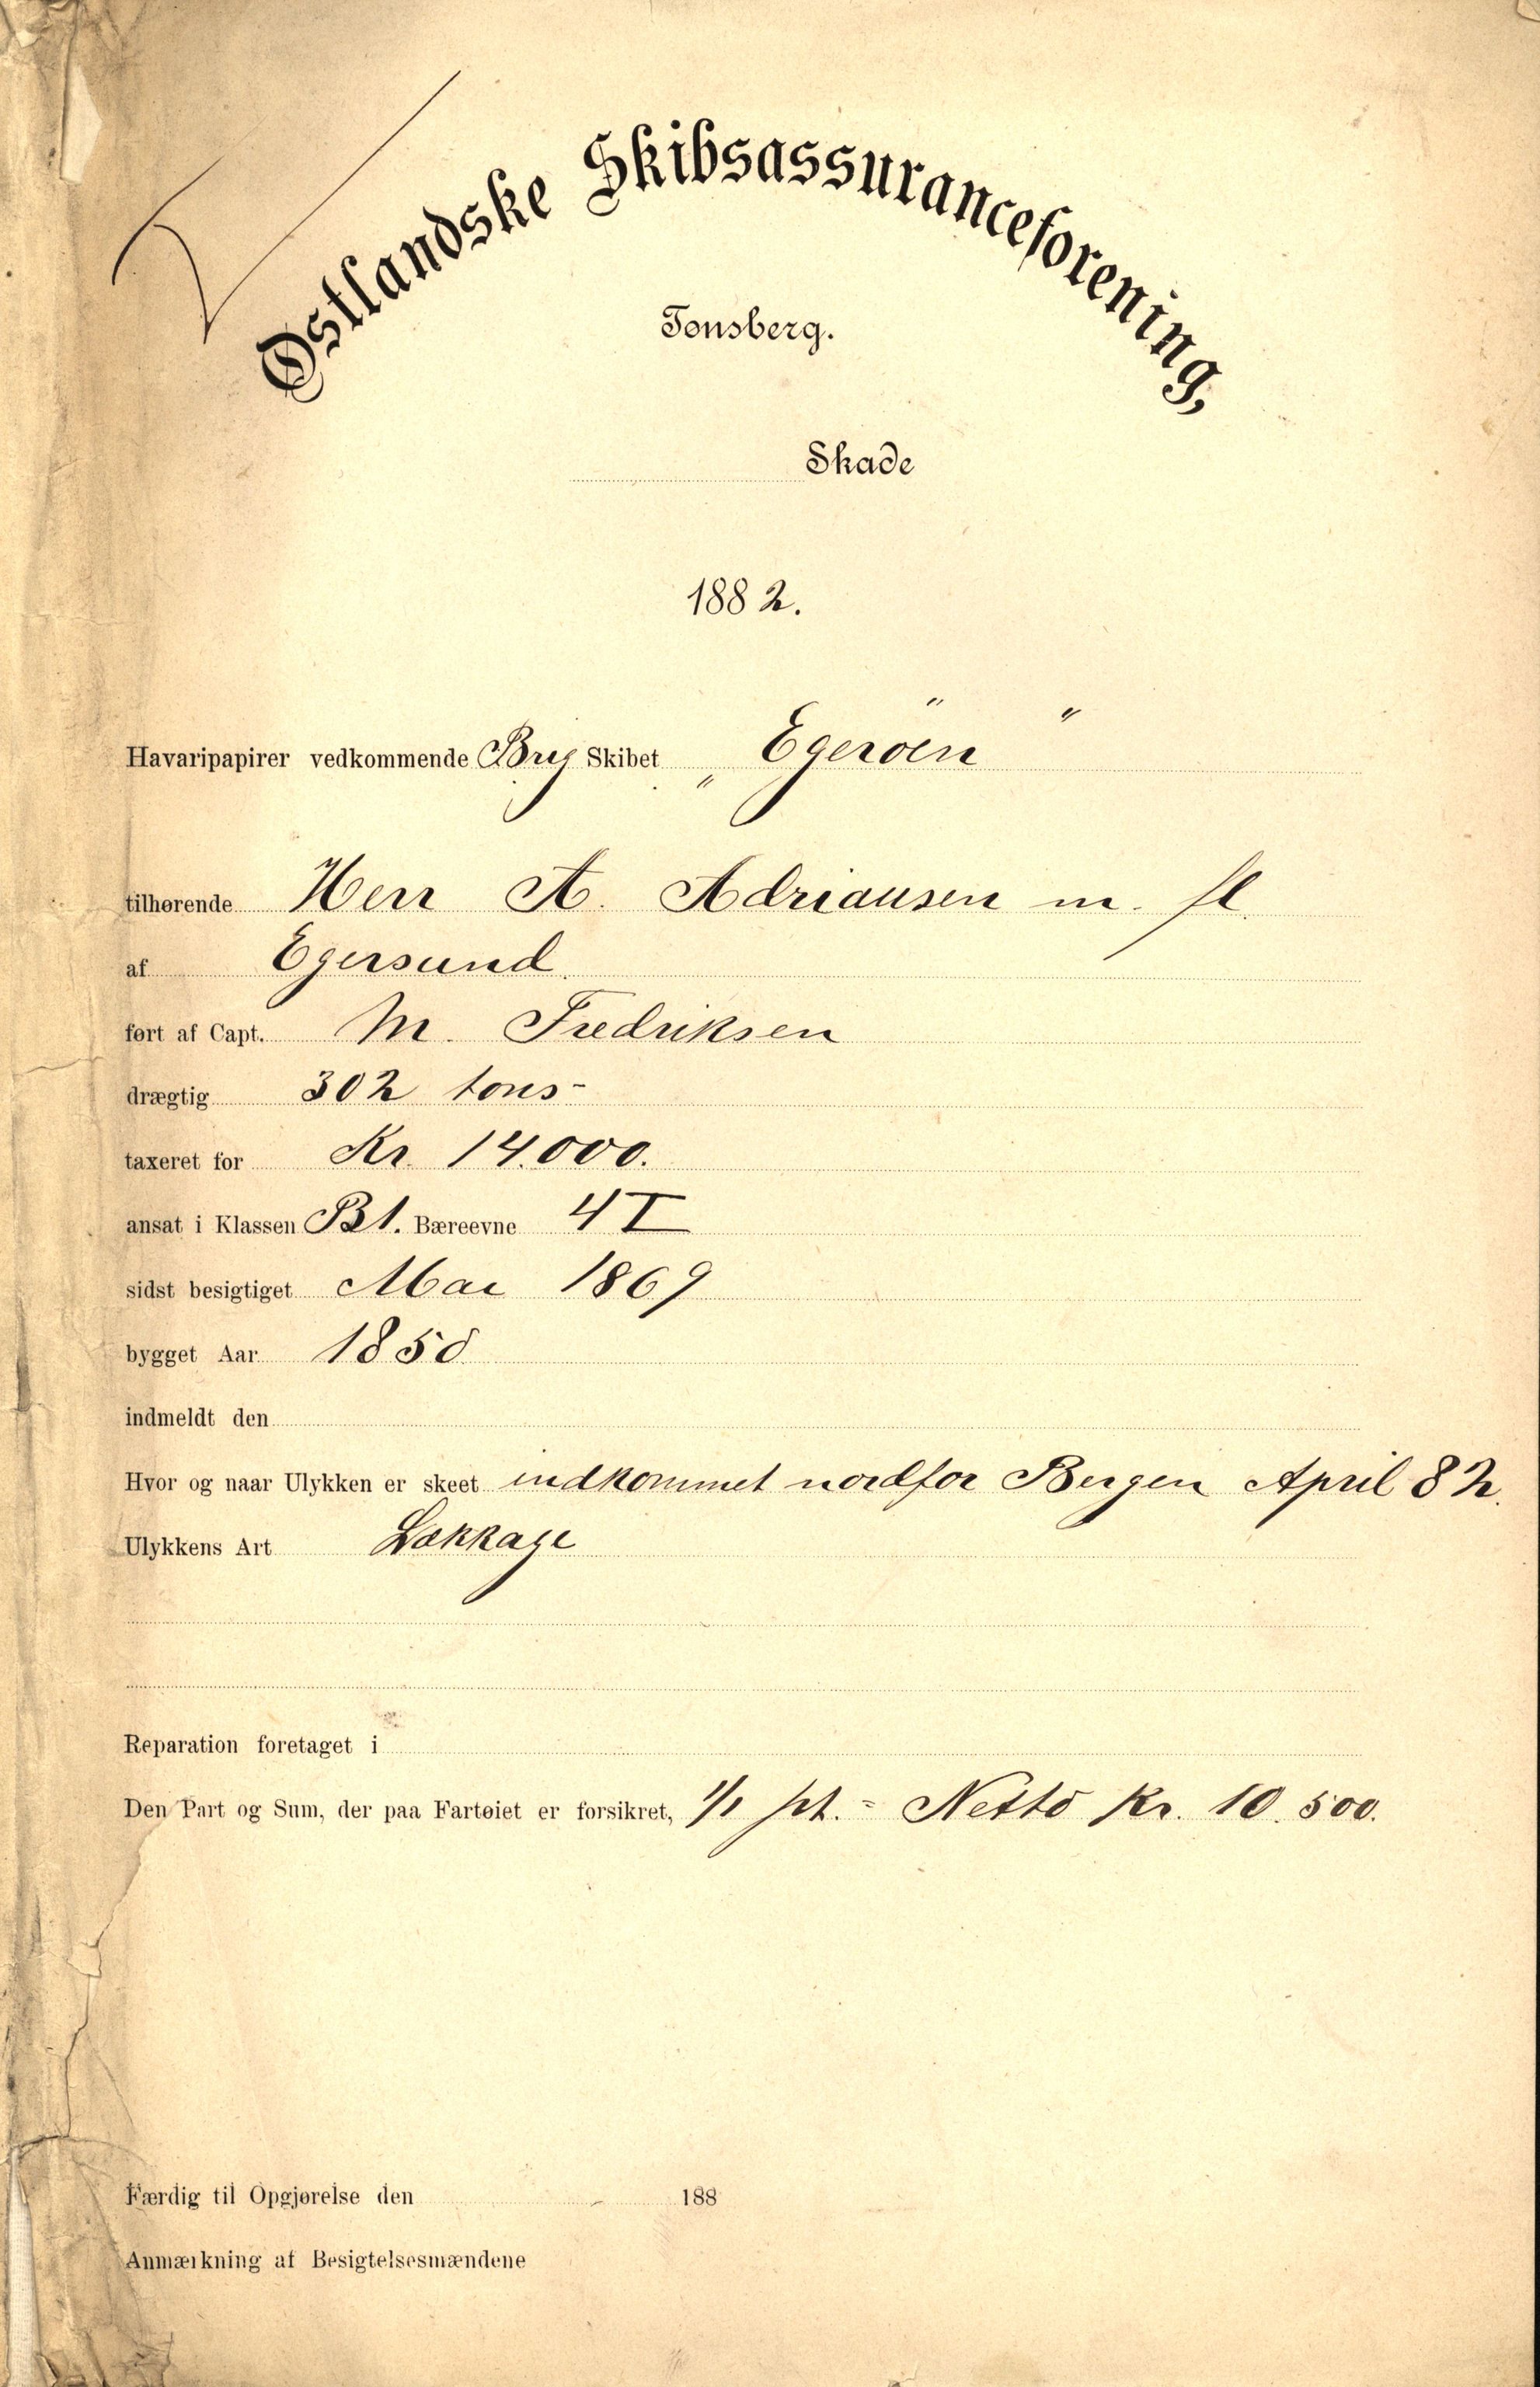 Østlandske Skibsassuranceforening,
Tønsberg.
Skade
1882.
Havaripapirer vedkommende Brig Skibet „Egeröen“
tilhørende Herr A. Adriansen m. fl.
af Egersund.
ført af Capt. M. Fredriksen
drægtig 302 tons
taxeret for Kr. 14.000.
ansat i Klassen B1. Bæreevne 4 I
sidst besigtiget Mai 1869
bygget Aar 1850
indmeldt den
Hvor og naar Ulykken er skeet indkommet nordfor Bergen April 82.
Ulykkens Art Lækkage
Reparation foretaget i
Den Part og Sum, der paa Fartøiet er forsikret, 1/1 pt. = Netto Kr. 10.500.
Færdig til Opgjørelse den 188
Anmærkning af Besigtelsesmændene